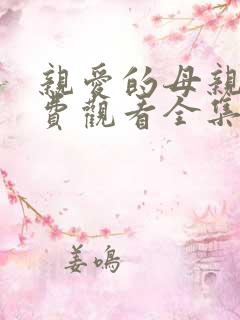 親愛的母親
費觀看全集
姜鳴